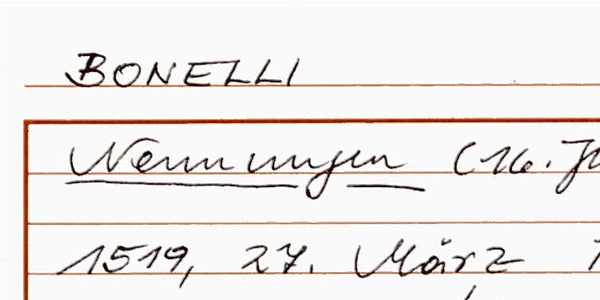 BONELLI
Nennungen (16. J
1519, 27. März